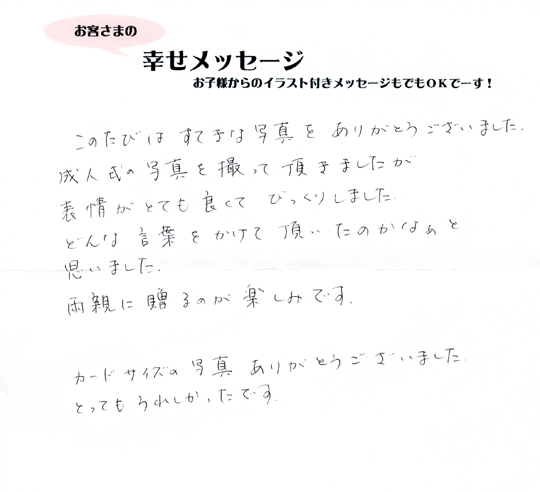 お客さまの
幸せメッセージ
お子様からのイラスト付きメッセージもでもOKでーす！
このたびは すてきな写真を ありがとうございました.
成人式の写真を撮って頂きましたが
表情がとても良くて びっくりしました.
どんな言葉をかけて頂いたのかなぁと
思いました.
両親に贈るのが楽しみです.
カードサイズの写真 ありがとうございました.
とってもうれしかったです.